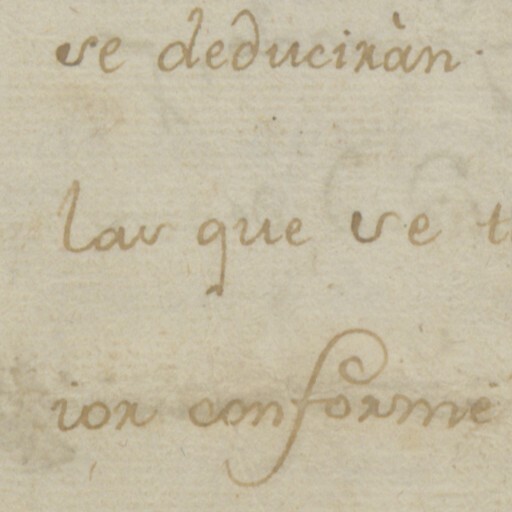 se deduciràn
las que se t
ior conforme